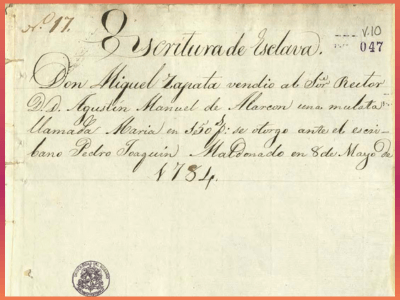 Nº 17.
Escritura de Esclava.
V.10
047
Don Miguel Zapata vendio al Sor Rector
D. D. Agustin Manuel de Marcon una mulata
llamada Maria en 350 p.s se otorgo ante el escri-
bano Pedro Joaquin Maldonado en 8 de Mayo de
1784.